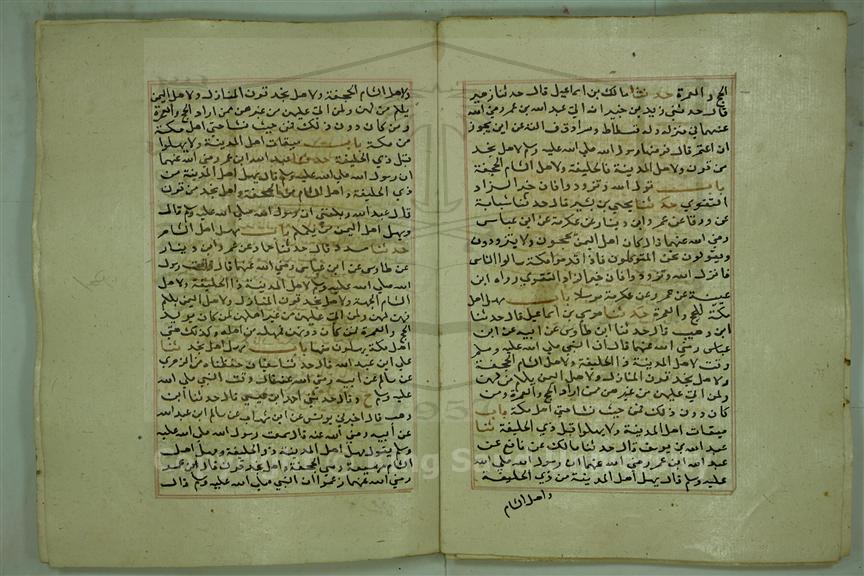 الحج والعمرة حدثنا مالك بن اسماعيل قال حدثنا زهير
قال حدثني زيد بن جبير انه اتى عبد الله بن عمر رضي الله
عنهما في منزله وله فسطاط وسرادق فسالته من اين يجوز
ان اعتمر قال فرضها رسول الله صلى الله عليه وسلم لاهل نجد
من قرن ولاهل المدينة ذا الحليفة ولاهل الشام الجحفة
باب قول الله وتزودوا فان خير الزاد
التقوى حدثنا يحيى بن بشير قال حدثنا شبابة
عن ورقا عن عمرو ابن دينار عن عكرمة عن ابن عباس
رضي الله عنهما قال كان اهل اليمن يحجون ولا يتزودون
ويقولون نحن المتوكلون فاذا قدموا مكة سالوا الناس
فانزل الله وتزودوا فان خير الزاد التقوى رواه ابن
عيينة عن عمرو عن عكرمة مرسلا باب مهل اهل
مكة للحج والعمرة حدثنا موسى بن اسماعيل قال حدثنا
ابن وهيب قال حدثنا ابن طاوس عن ابيه عن ابن
عباس رضي الله عنهما قال ان النبي صلى الله عليه وسلم
وقت لاهل المدينة ذا الحليفة ولاهل الشام الجحفة
ولاهل نجد قرن المنازل ولاهل اليمن يلملم هن لهن
ولمن اتى عليهن من غيرهن ممن اراد الحج والعمرة ومن
كان دون ذلك فمن حيث انشا حتى اهل مكة باب
ميقات اهل المدينة ولا يهلوا قبل ذي الحليفة ثنا
عبد الله بن يوسف قال حدثنا مالك عن نافع عن
عبد الله ابن عمر رضي الله عنهما ان رسول الله صلى الله
عليه وسلم قال يهل اهل المدينة من ذي الحليفة
واهل الشام
ولاهل الشام الجحفة ولاهل نجد قرن المنازل ولاهل اليمن
يلملم هن لهن ولمن اتى عليهن من غيرهن ممن اراد الحج والعمرة
ومن كان دون ذلك فمن حيث انشا حتى اهل مكة
من مكة باب ميقات اهل المدينة ولا يهلوا
قبل ذي الحليفة عبد الله ابن عمر رضي الله عنهما
ان رسول الله صلى الله عليه وسلم قال يهل اهل المدينة من
ذي الحليفة واهل الشام من الجحفة واهل نجد من قرن
قال عبد الله وبلغني ان رسول الله صلى الله عليه وسلم قال
ويهل اهل اليمن من يلملم باب مهل اهل الشام
حدثنا مسدد قال حدثنا حماد عن عمرو ابن دينار
عن طاوس عن ابن عباس رضي الله عنهما قال وقت رسول
الله صلى الله عليه وسلم لاهل المدينة ذا الحليفة ولاهل
الشام الجحفة ولاهل نجد قرن المنازل ولاهل اليمن يلملم
فهن لهن ولمن اتى عليهن من غير اهلهن لمن كان يريد
الحج والعمرة فمن كان دونهن فمهله من اهله وكذلك حتى
اهل مكة يهلون منها باب مهل اهل نجد ثنا
علي ابن عبد الله قال حدثنا سفيان حفظناه من الزهري
عن سالم عن ابيه رضي الله عنه قال وقت النبي صلى الله
عليه وسلم ح وقال حدثني احمد ابن عيسى قال حدثنا ابن
وهب قال اخبرني يونس عن ابن شهاب عن سالم ابن عبد الله
عن أبيه رضي الله عنه قال سمعت رسول الله صلى الله عليه
وسلم يقول مهل اهل المدينة ذو الحليفة ومهل اهل
الشام مهيعة وهي الجحفة واهل نجد قرن قال ابن عمر
رضي الله عنهما زعموا ان النبي صلى الله عليه وسلم قال